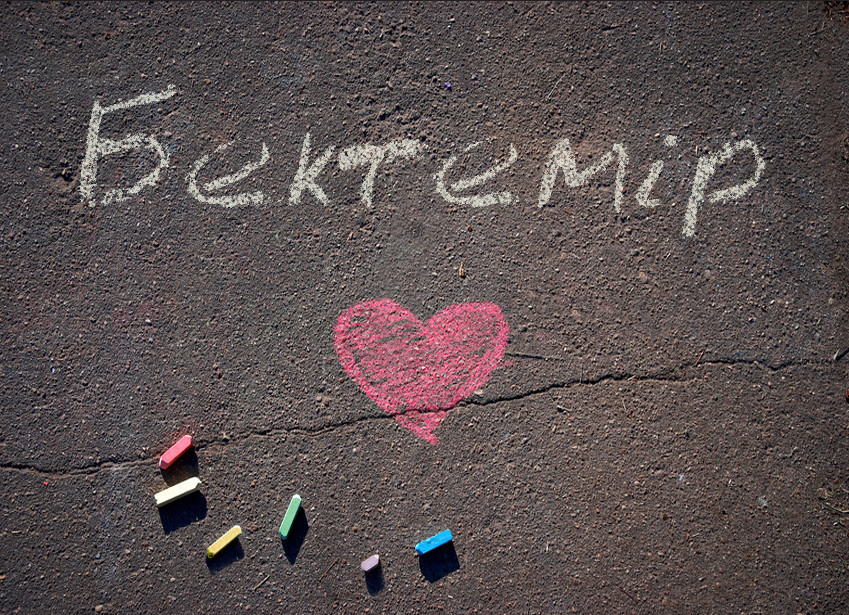 Бектемір